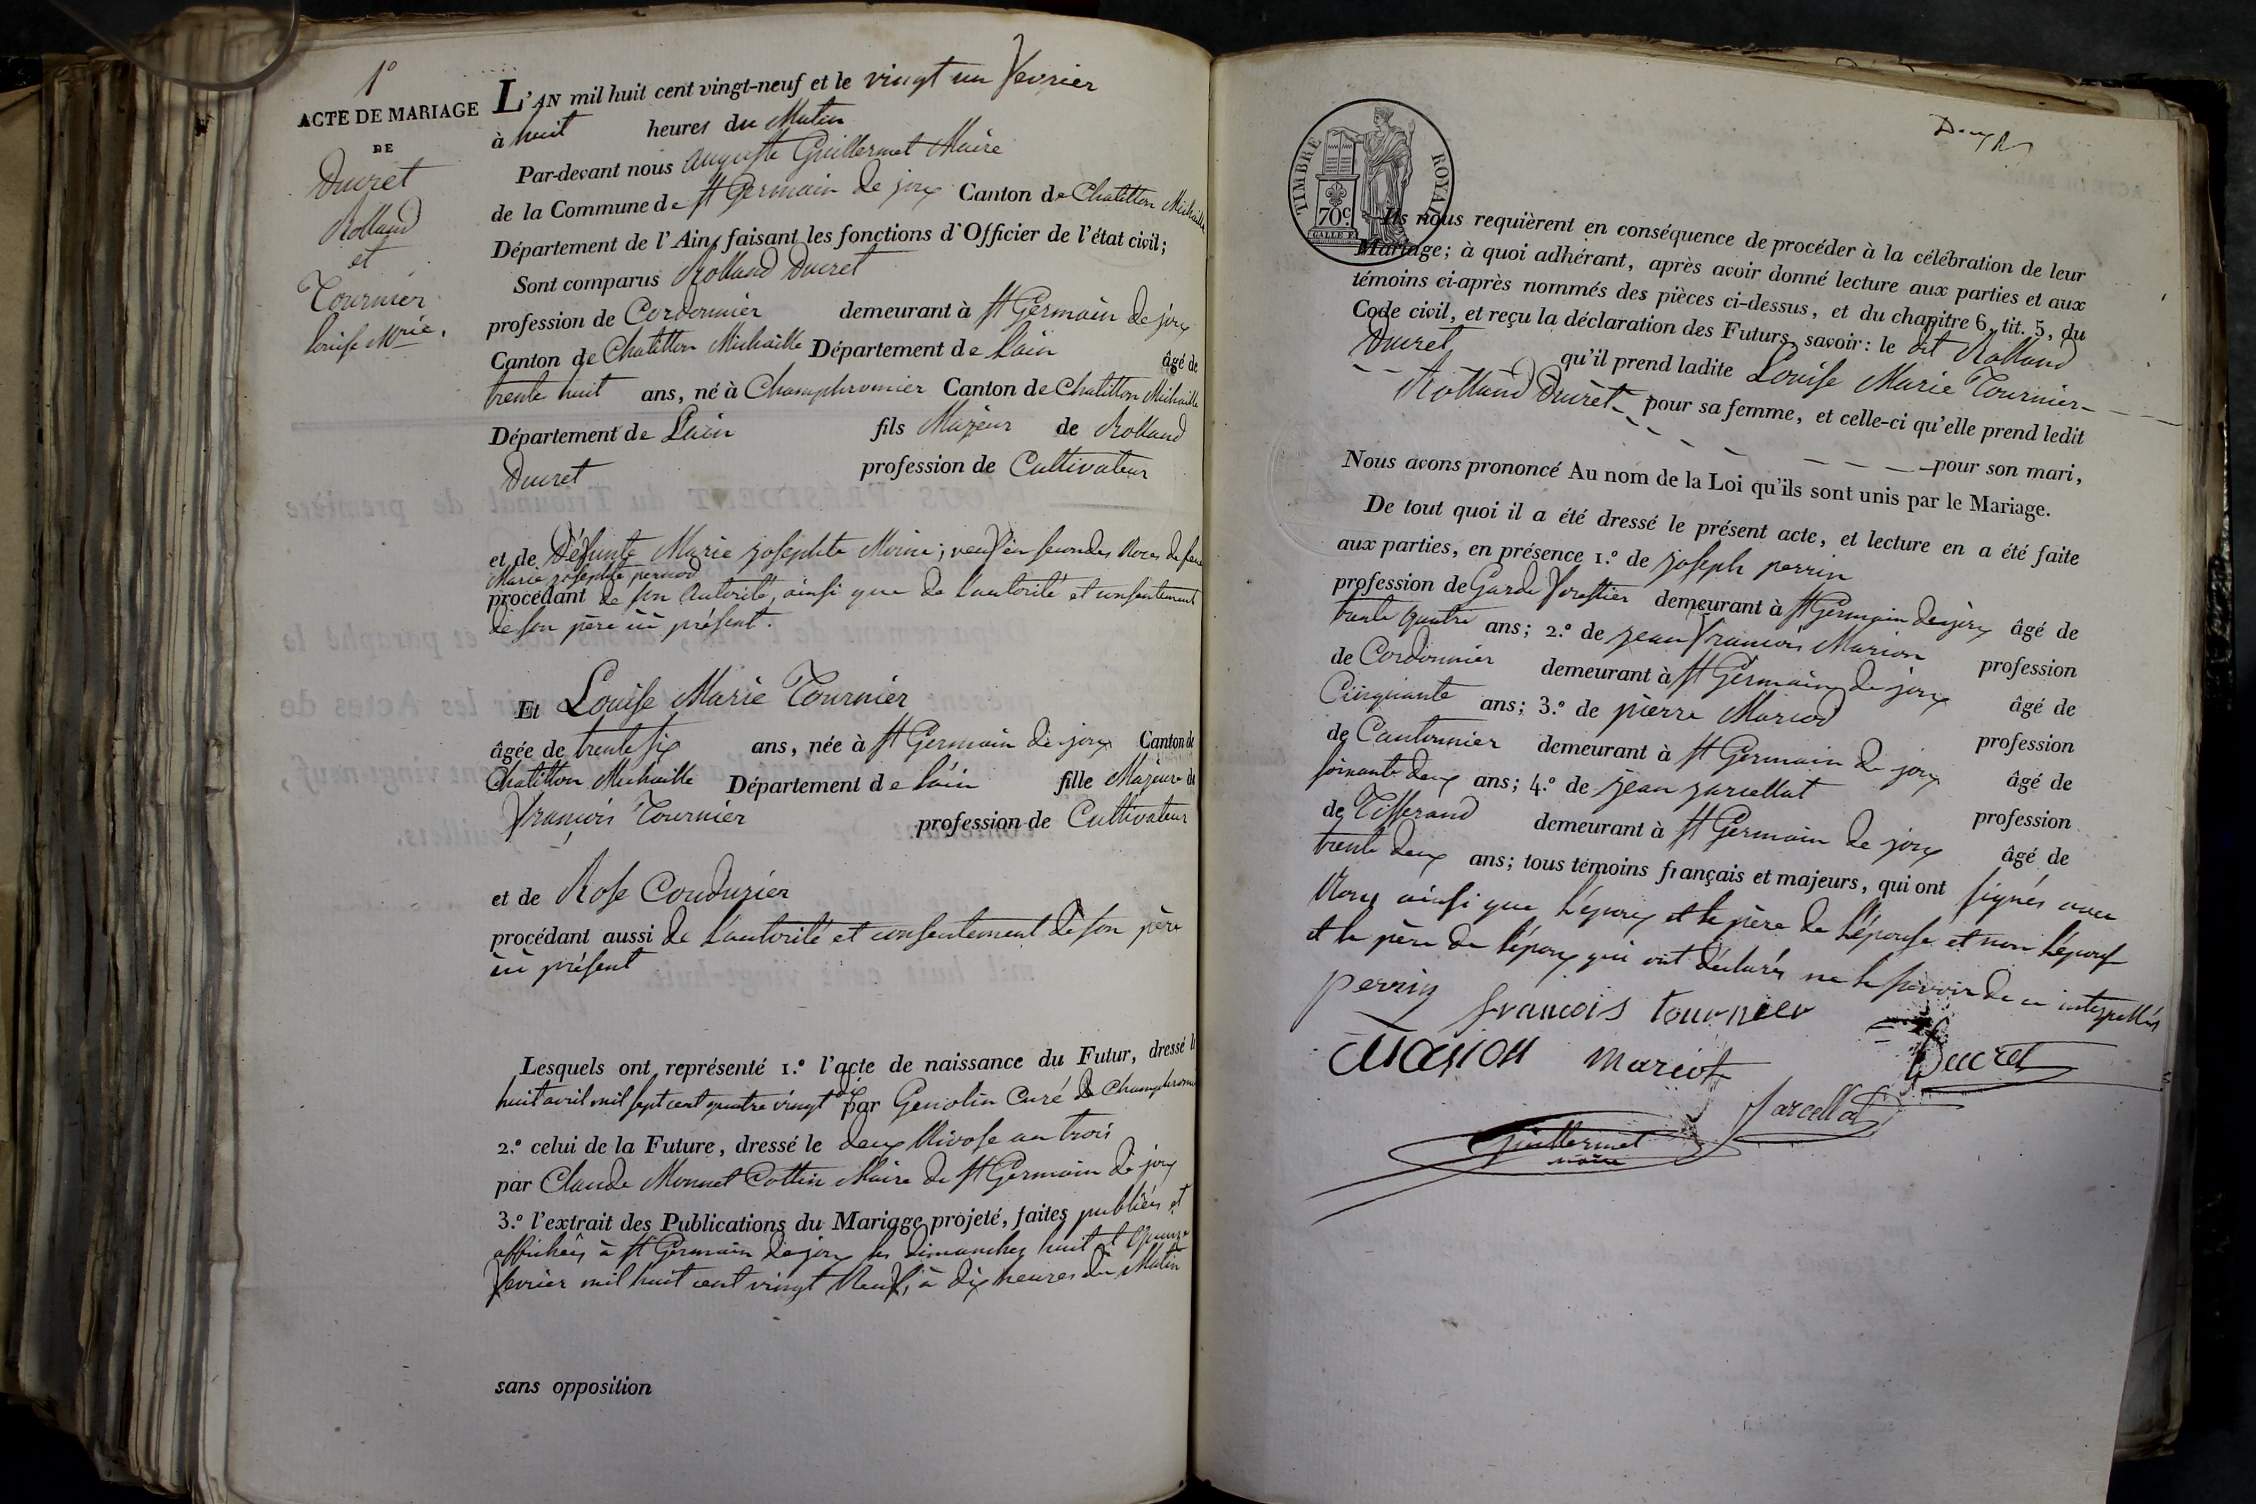 1º
ACTE DE MARIAGE
DE
Ducret
Rolland
et
Tournier
Louise Mrie.
L'AN mil huit cent vingt-neuf et le vingt un fevrier
à huit heures du Matin
Par-devant nous Auguste Guillermet Maire
de la Commune de St Germain de joux Canton de Chatillon Michaille
Département de l'Ain, faisant les fonctions d'Officier de l'état civil;
Sont comparus Rolland Ducret
profession de Cordonnier demeurant à St Germain de joux
Canton de Chatillon Michaille Département de L'ain âgé de
trente huit ans, né à Champfromier Canton de Chatillon Michaille
Département de L'ain fils Majeur de Rolland
Ducret profession de Cultivateur
et de Défunte Marie josephte Moine; veuf en secondes Noces de feue
Marie josephte pernod
procédant de son autorité, ainsi que de l'autorité et consentement
de son père ici présent.
Et Louise Marie Tournier
âgée de trente six ans, née à St Germain de joux Canton de
Chatillon Michaille Département de L'ain fille Majeure de
françois Tournier profession de Cultivateur
et de Rose Coudurier
procédant aussi de l'autorité et consentement de son père
ici présent
Lesquels ont représenté 1.º l'acte de naissance du Futur, dressé le
huit avril mil sept cent quatre vingt dix par Genolin Curé de Champfromier
2.º celui de la Future, dressé le deux Nivose an trois
par Claude Monnet Cottin Maire de St Germain de joux
3.º l'extrait des Publications du Mariage projeté, faites publiées et
affichées à St Germain de joux les dimanches huit et quinze
fevrier mil huit cent vingt Neuf, à dix heures du Matin
sans opposition
TIMBRE ROYAL
70c.
Ils nous requièrent en conséquence de procéder à la célébration de leur
Mariage; à quoi adhérant, après avoir donné lecture aux parties et aux
témoins ci-après nommés des pièces ci-dessus, et du chapitre 6, tit. 5, du
Code civil, et reçu la déclaration des Futurs, savoir: le dit Rolland
Ducret qu'il prend ladite Louise Marie Tournier
pour sa femme, et celle-ci qu'elle prend ledit
Rolland Ducret pour son mari,
Nous avons prononcé Au nom de la Loi qu'ils sont unis par le Mariage.
De tout quoi il a été dressé le présent acte, et lecture en a été faite
aux parties, en présence 1.º de joseph perrin
profession de Garde forestier demeurant à St Germain de joux âgé de
trente quatre ans; 2.º de jean françois Marion profession
de Cordonnier demeurant à St Germain de joux âgé de
Cinquante ans; 3.º de pierre Mariod profession
de Cantonnier demeurant à St Germain de joux âgé de
soixante deux ans; 4.º de jean jarcellat profession
de Tisserand demeurant à St Germain de joux âgé de
trente deux ans; tous témoins français et majeurs, qui ont signés avec
Nous ainsi que l'époux et le père de l'épouse et non l'épouse
et le père de l'époux qui ont déclarés ne le savoir de ce interpellés
perrin francois tournier
Marion mariot Ducret
Jarcellat
Guillermet
maire